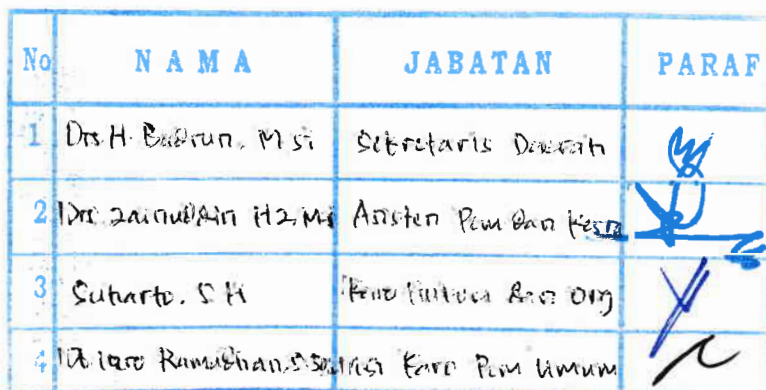 No NAMA JABATAN PARAF
1 Drs. H. Badrun. M si Sekretaris Daerah
2 Drs. Zainuddin HZ, Msi Asisten Pem dan Kesra
3 Suharto. S H Karo dan Org
4 Ramadhan Karo Pem Umum